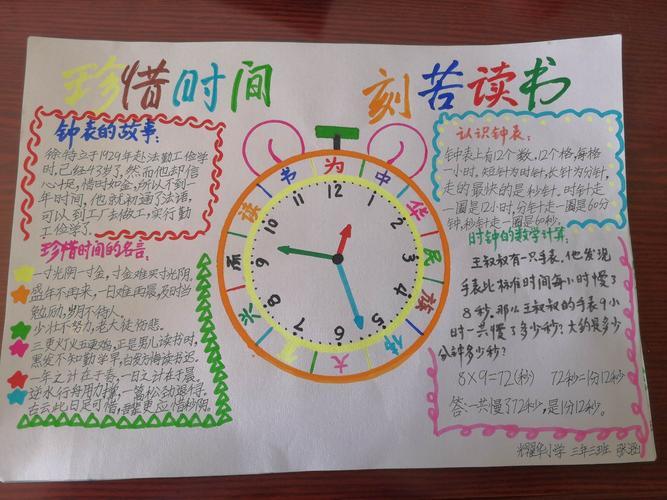 珍惜时间 刻苦读书
钟表的故事:
徐特立于1924年赴法勤工俭学
时,已经43岁了,然而他却信
心十足,惜时如金,所以不到一
年时间,他就初通了法语,
可以到工厂去做工,实行勤
工俭学了。
珍惜时间的名言:
一寸光阴一寸金,寸金难买寸光阴。
盛年不再来,一日难再晨,及时当
勉励,岁月不待人。
少壮不努力,老大徒伤悲。
三更灯火五更鸡,正是男儿读书时,
黑发不知勤学早,白首方悔读书迟。
一年之计在于春,一日之计在于晨
逆水行舟用力撑,一篙松劲退得。
古云此日足可惜,吾辈更应惜秒阴。
为中华民族伟大复兴而读书
12
1
2
3
4
5
6
7
8
9
10
11
认识钟表:
钟表上有12个数,12个格,每格
一小时,短针为时针,长针为分针,
走的最快的是秒针。时针走
一圈是12小时,分针走一圈是60分
钟,秒针走一圈是60秒。
时钟的数学计算:
王叔叔有一只手表,他发现
手表比标准时间每小时慢了
8秒,那么王叔叔的手表9小
时一共慢了多少秒?大约是多少
分钟多少秒?
8×9=72(秒) 72秒=1分12秒
答:一共慢了72秒,是1分12秒。
小学 三年三班 张